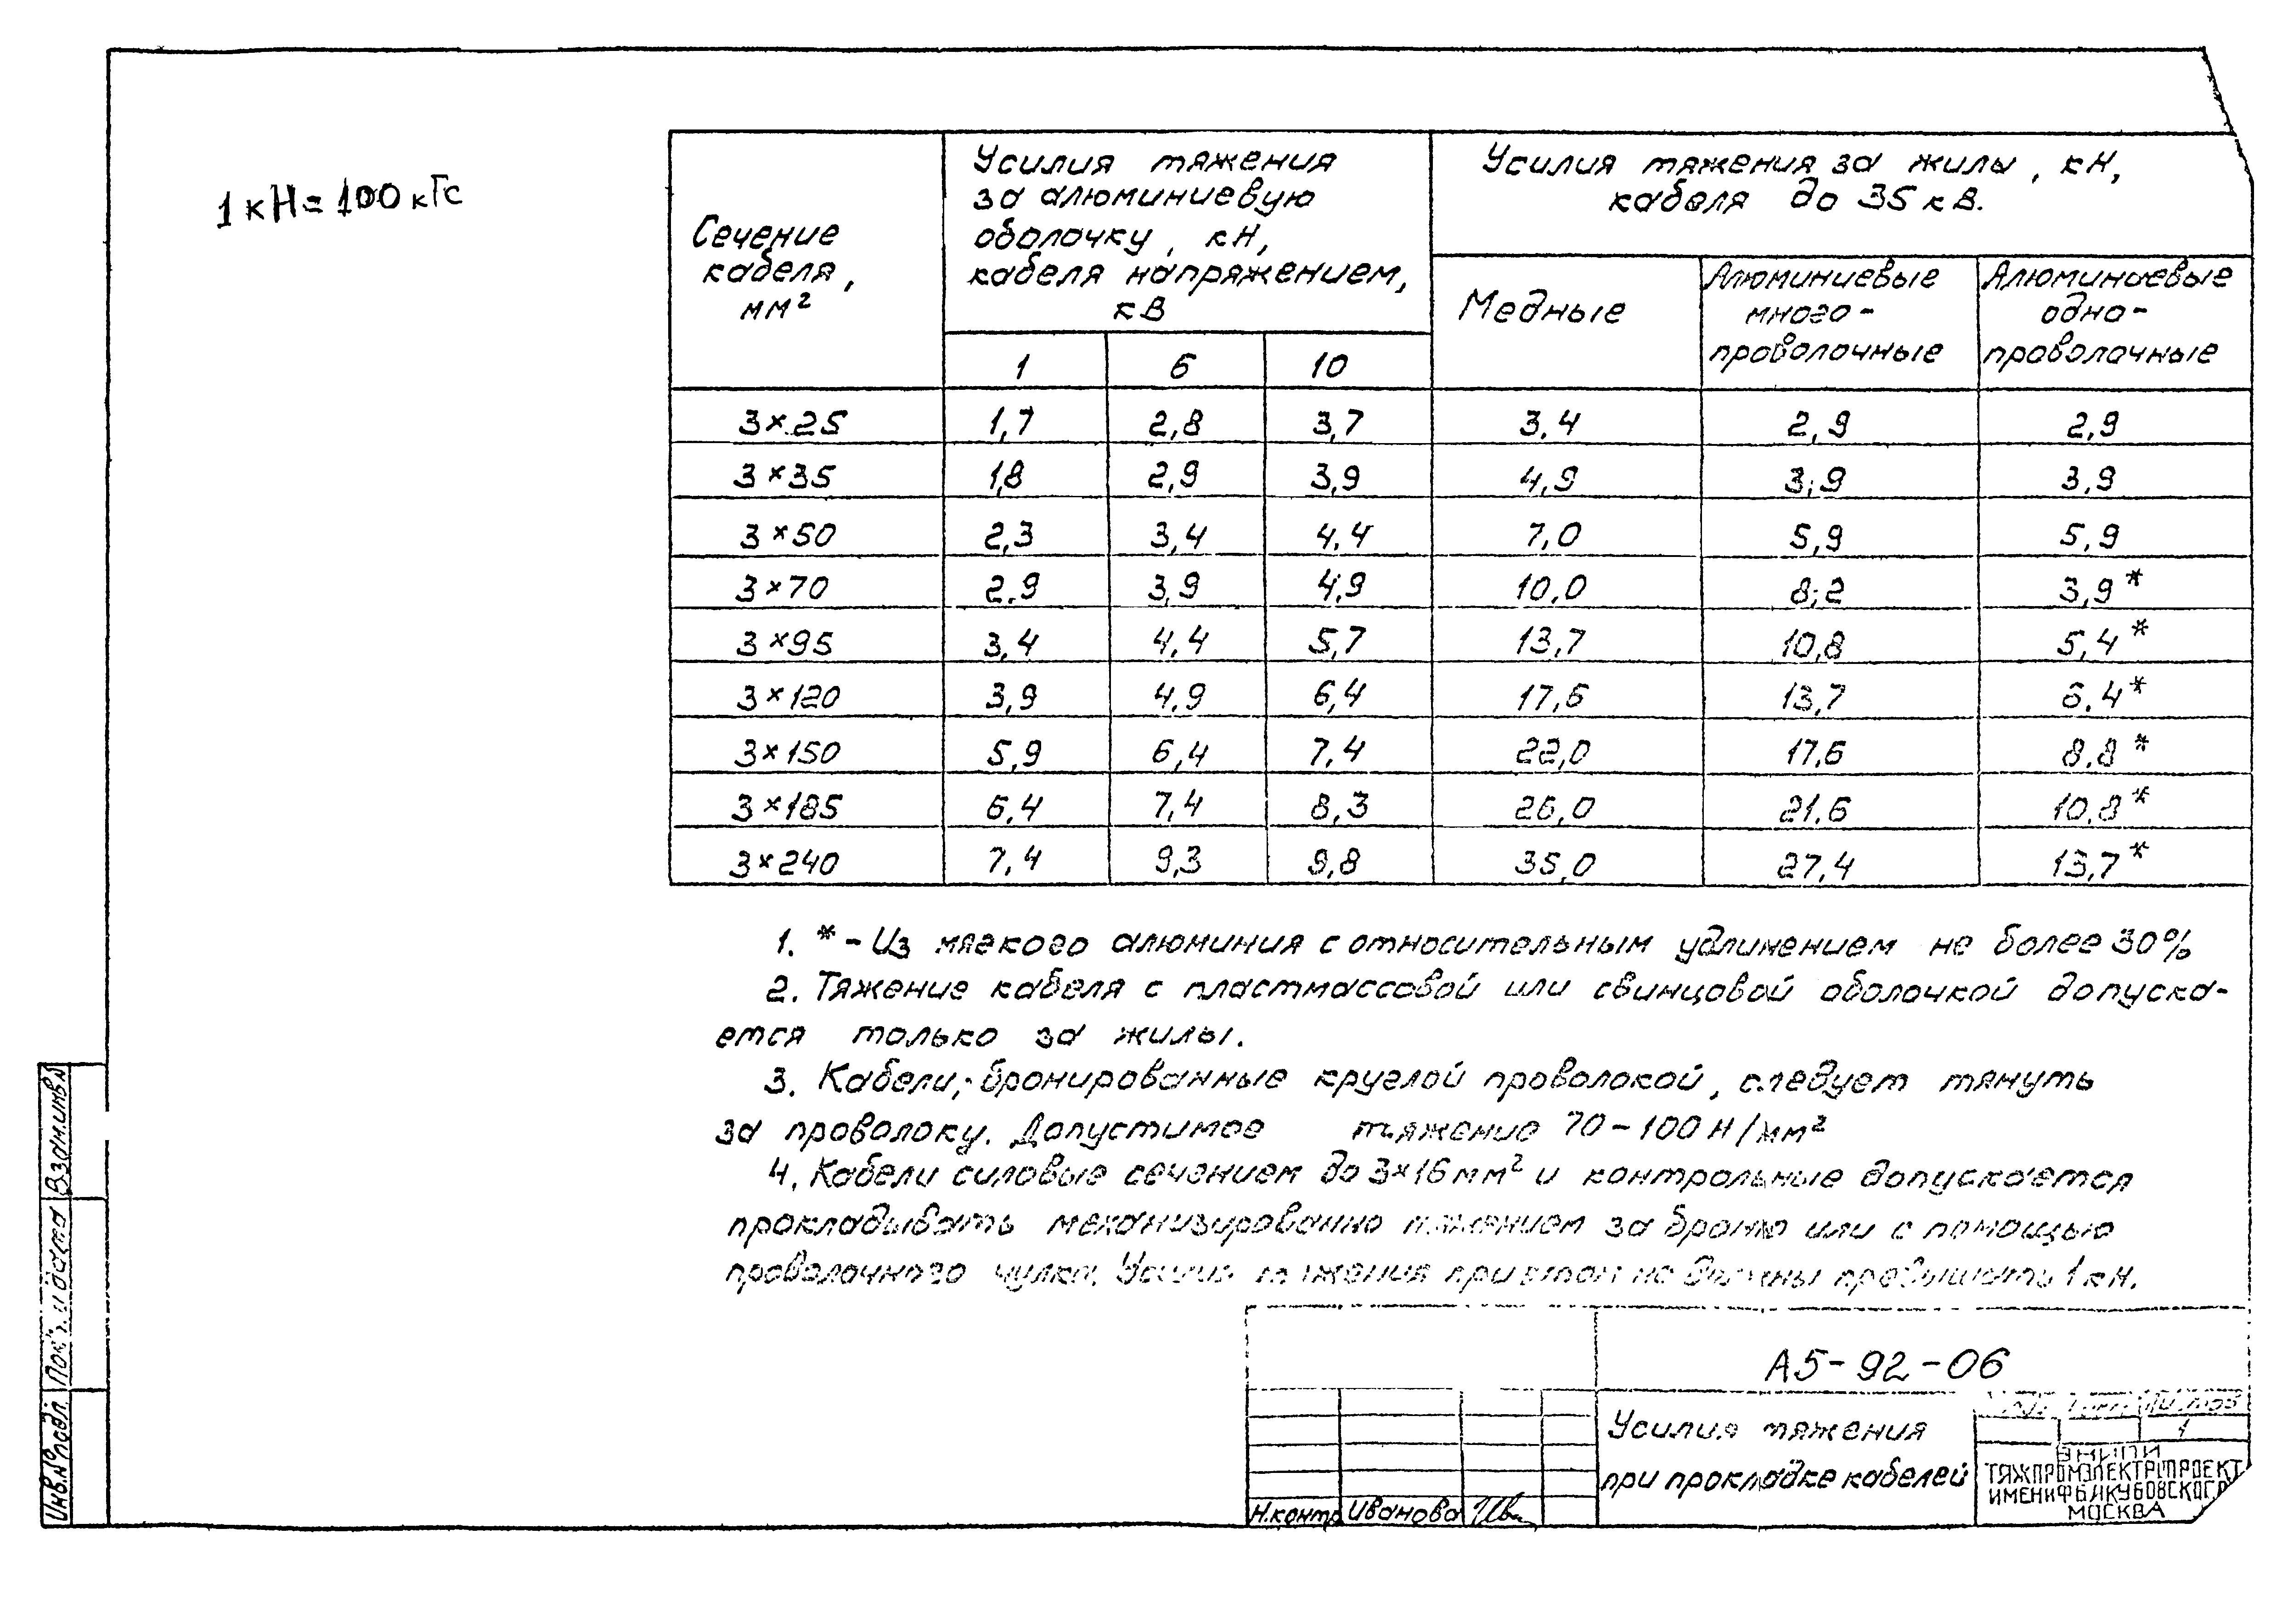 1 кН = 100 кГс
Сечение
кабеля,
мм²
Усилия тяжения
за алюминиевую
оболочку, кН,
кабеля напряжением,
кВ
Усилия тяжения за жилы, кН,
кабеля до 35 кВ.
Медные
Алюминиевые
много-
проволочные
Алюминиевые
одно-
проволочные
1 6 10
3×25 1,7 2,8 3,7 3,4 2,9 2,9
3×35 1,8 2,9 3,9 4,9 3,9 3,9
3×50 2,3 3,4 4,4 7,0 5,9 5,9
3×70 2,9 3,9 4,9 10,0 8,2 3,9*
3×95 3,4 4,4 5,7 13,7 10,8 5,4*
3×120 3,9 4,9 6,4 17,6 13,7 6,4*
3×150 5,9 6,4 7,4 22,0 17,6 8,8*
3×185 6,4 7,4 8,3 26,0 21,6 10,8*
3×240 7,4 9,3 9,8 35,0 27,4 13,7*
1. * - Из мягкого алюминия с относительным удлинением не более 30%
2. Тяжение кабеля с пластмассовой или свинцовой оболочкой допуска-
ется только за жилы.
3. Кабели, бронированные круглой проволокой, следует тянуть
за проволоку. Допустимое тяжение 70-100 Н/мм²
4. Кабели силовые сечением до 3×16 мм² и контрольные допускается
прокладывать механизированно тяжением за броню или с помощью
проволочного чулка. Усилия тяжения при этом не должны превышать 1 кН.
А5-92-06
Усилия тяжения
при прокладке кабелей
Листов
1
ВНИПИ
ТЯЖПРОМЭЛЕКТРОПРОЕКТ
ИМЕНИ Ф.Б.ЯКУБОВСКОГО
МОСКВА
Н.контр Иванова
Взам.инв.№
и дата
Инв.№ подл